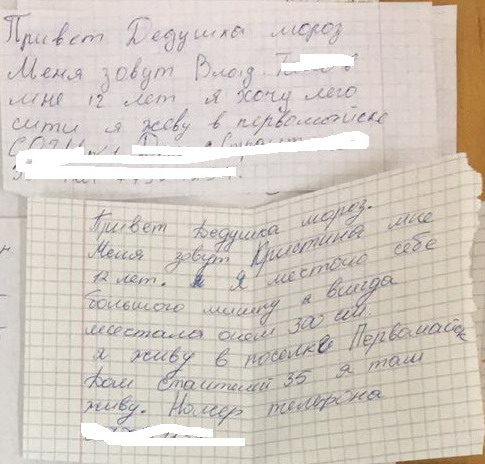 Привет Дедушка мороз
Меня зовут Влад
мне 12 лет я хочу лего
сити я жеву в первомайске
Привет Дедушка мороз.
Меня зовут Кристина мне
12 лет. Я местаю себе
большого мишку я всигда
местала онем 300 см.
я живу в поселке Первомайск
Дом 35 я там
живу. Номер телефона